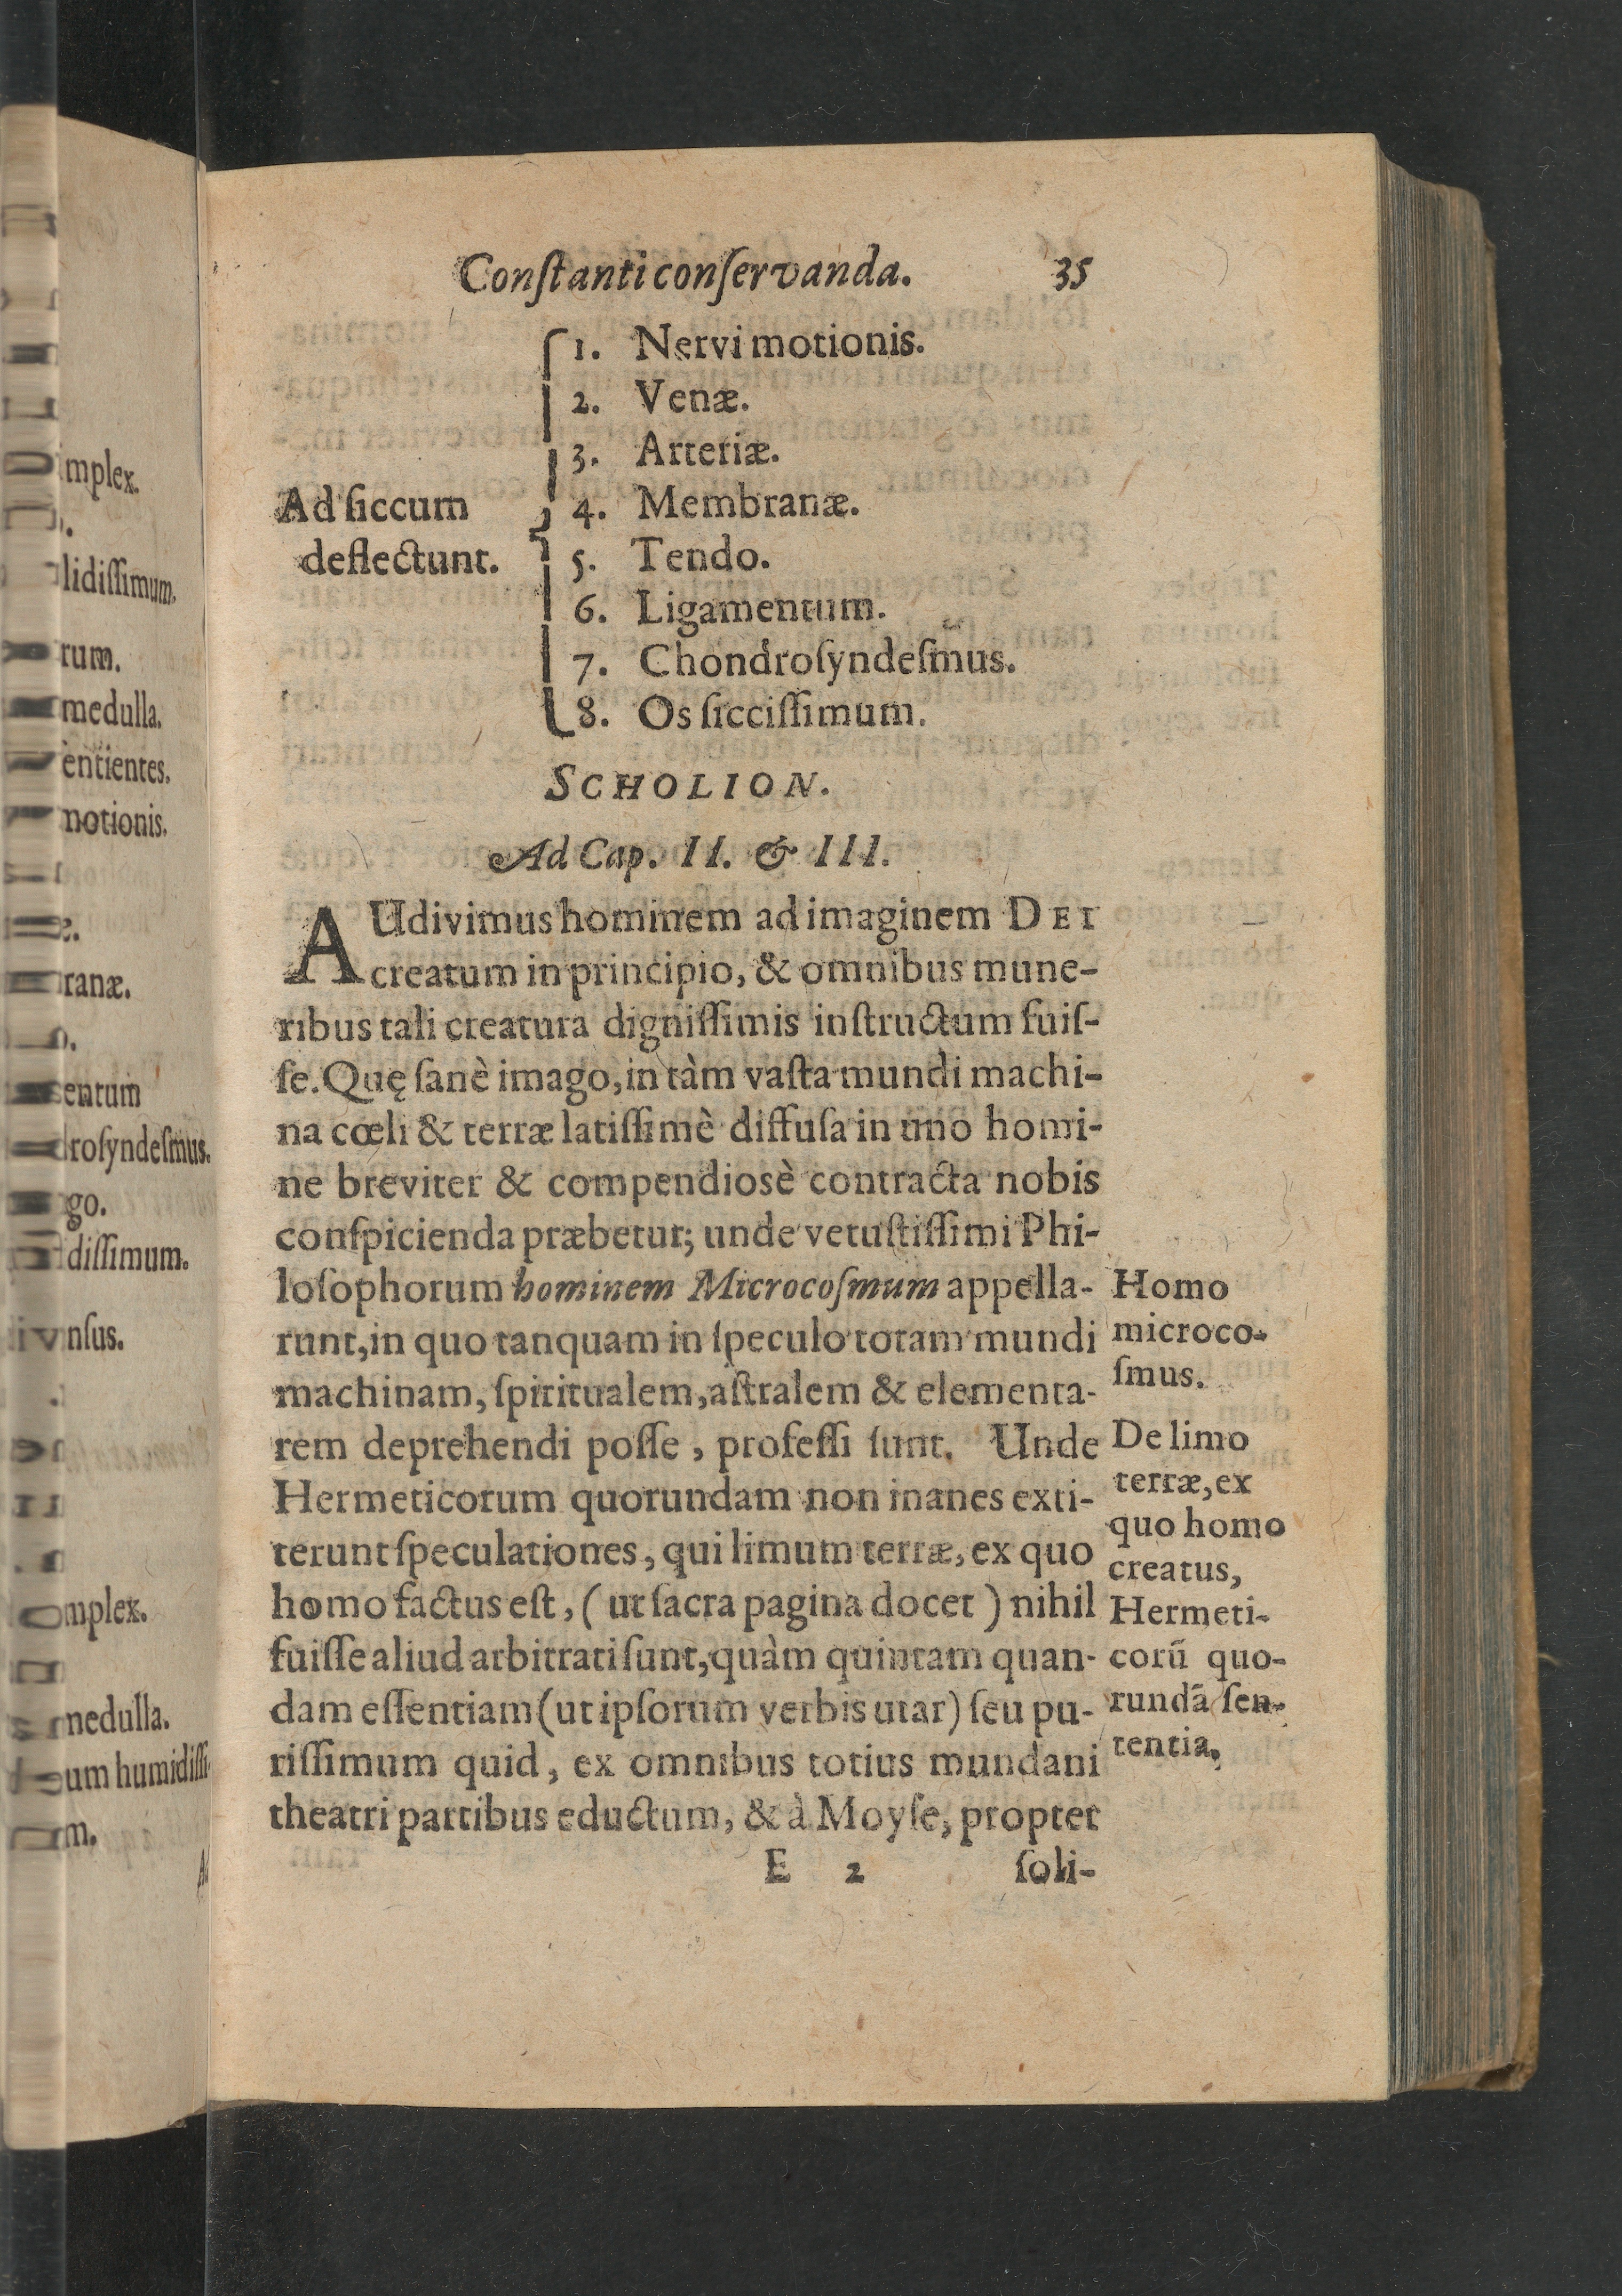 Conſtanti conſervanda. 35
1. Nervi motionis.
2. Venæ.
3. Arteriæ.
Ad ſiccum 4. Membranæ.
deflectunt. 5. Tendo.
6. Ligamentum.
7. Chondroſyndeſmus.
8. Os ſicciſſimum.
SCHOLION.
Ad Cap. II. & III.
AUdivimus hominem ad imaginem DEI
creatum in principio, & omnibus mune-
ribus tali creatura digniſſimis inſtructum fuiſ-
ſe. Quę ſanè imago, in tàm vaſta mundi machi-
na cœli & terræ latiſſimè diffuſa in uno homi-
ne breviter & compendiosè contracta nobis
conſpicienda præbetur; unde vetuſtiſſimi Phi-
loſophorum hominem Microcoſmum appella-
runt, in quo tanquam in ſpeculo totam mundi
machinam, ſpiritualem, aſtralem & elementa-
rem deprehendi poſſe, profeſſi ſunt. Unde
Hermeticorum quorundam non inanes exti-
terunt ſpeculationes, qui limum terræ, ex quo
homo factus eſt, (ut ſacra pagina docet) nihil
fuiſſe aliud arbitrati ſunt, quàm quintam quan-
dam eſſentiam (ut ipſorum verbis utar) ſeu pu-
riſſimum quid, ex omnibus totius mundani
theatri partibus eductum, & à Moyſe, propter
E 2 ſoli-
Homo
microco-
ſmus.
De limo
terræ, ex
quo homo
creatus,
Hermeti-
corũ quo-
rundã ſen-
tentia.
mplex.
lidiſſimum.
rum.
medulla.
entientes.
notionis.
ranæ.
entum
roſyndeſmus.
go.
diſſimum.
nſus.
mplex.
nedulla.
um humidiſſi-
m.